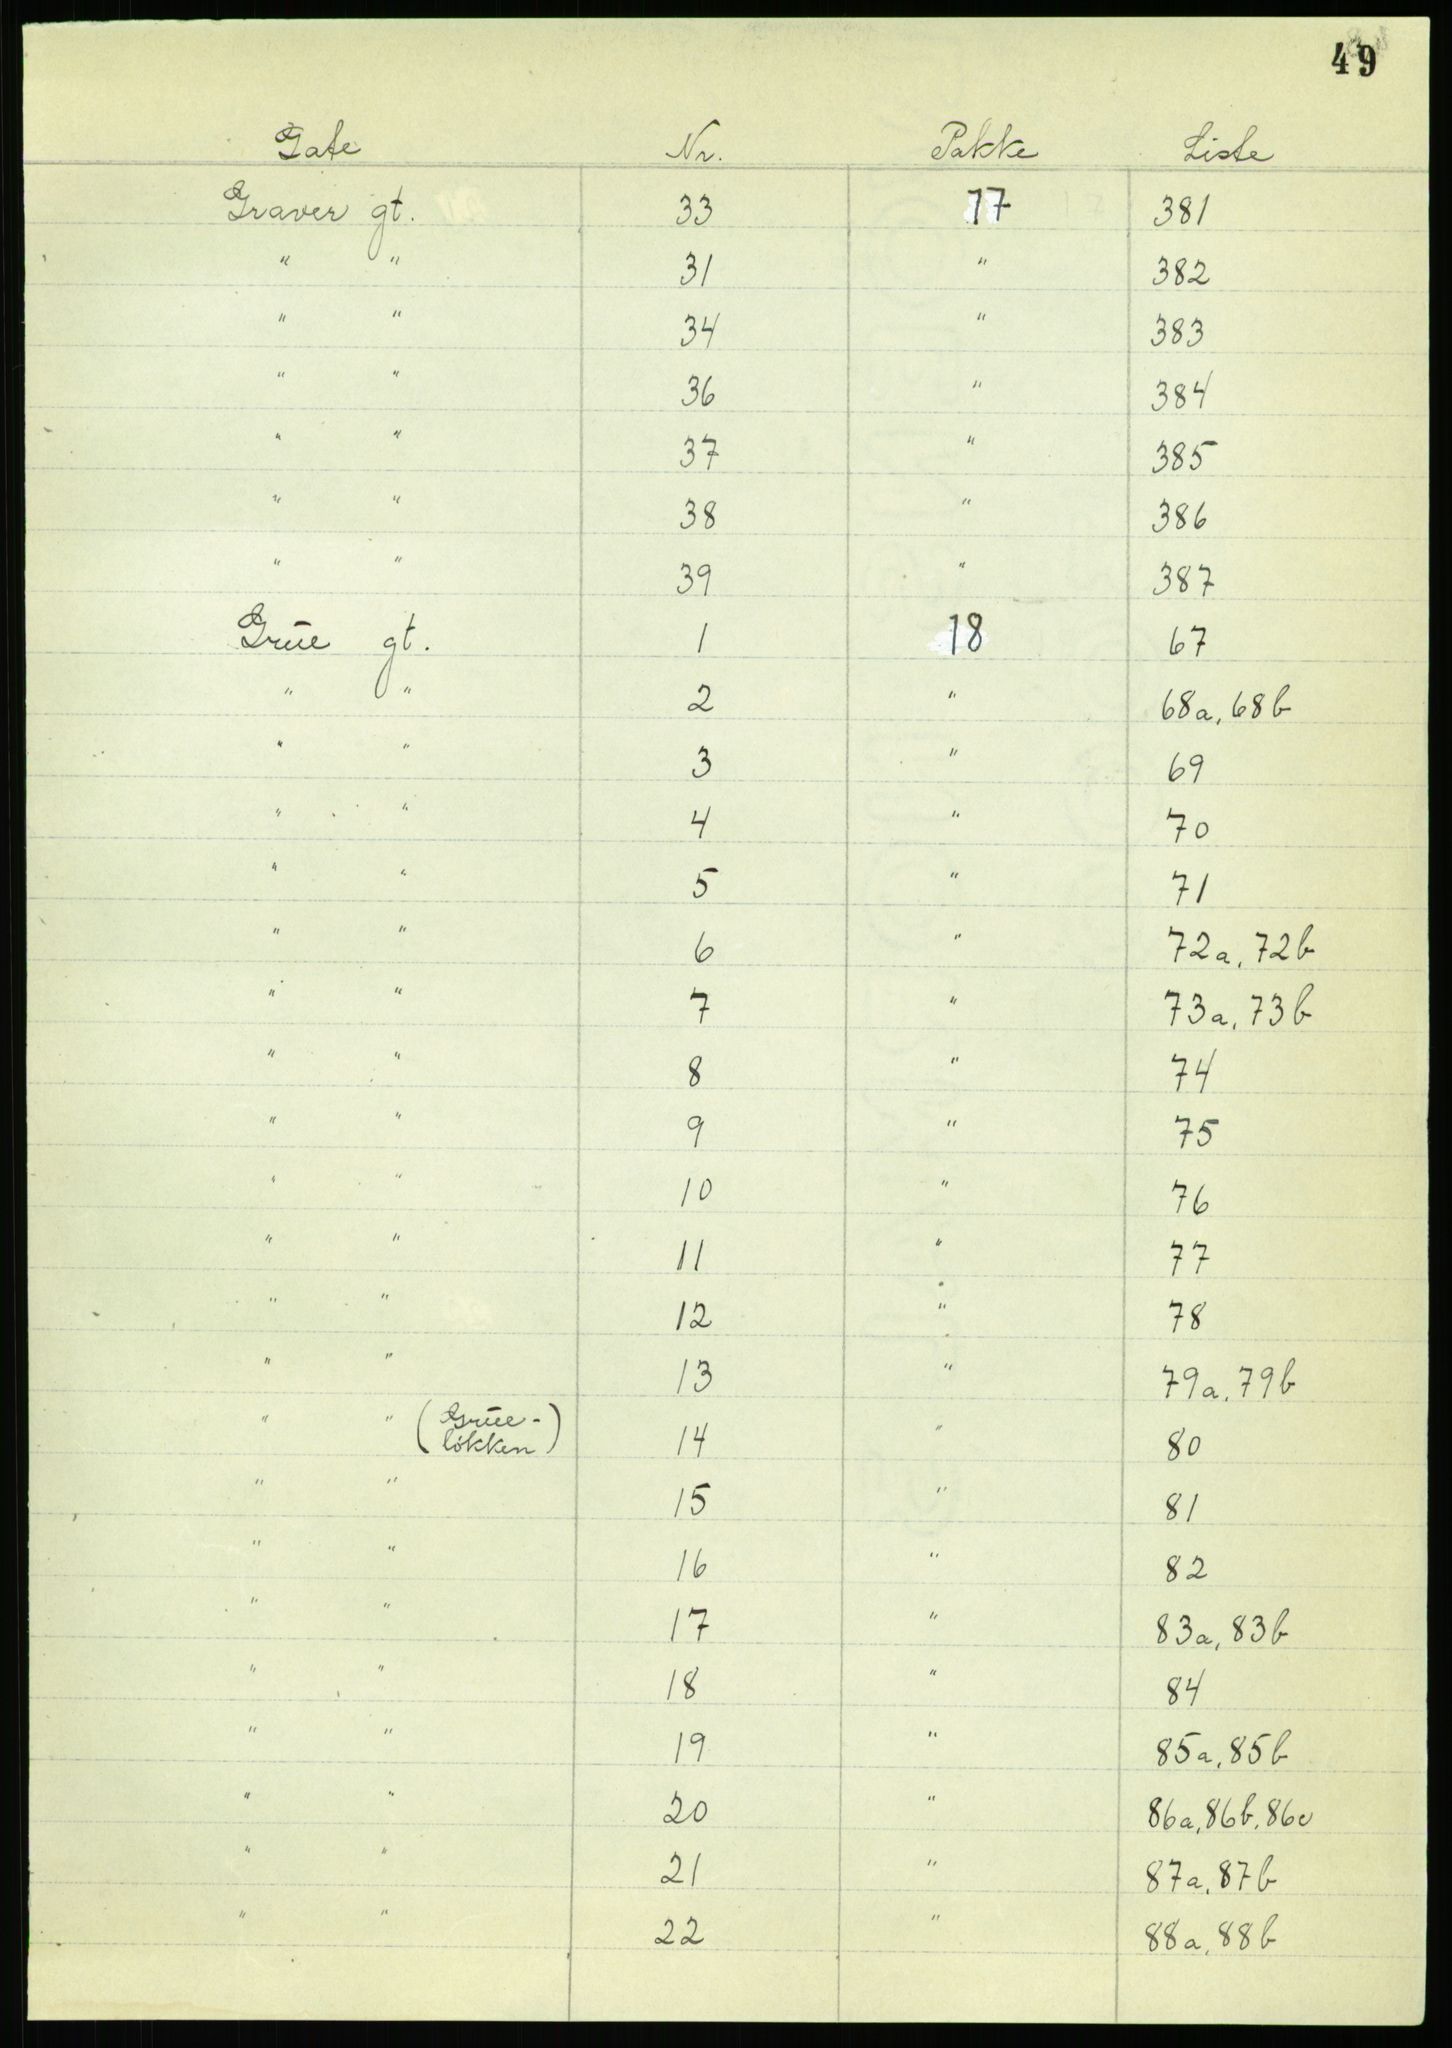 49
Gate Nr. Pakke Liste
Graver gt. 33 17 381
" " 31 " 382
" " 34 " 383
" " 36 " 384
" " 37 " 385
" " 38 " 386
" " 39 " 387
Grūe gt. 1 18 67
" " 2 " 68a, 68b
" " 3 " 69
" " 4 " 70
" " 5 " 71
" " 6 " 72a, 72b
" " 7 " 73a, 73b
" " 8 " 74
" " 9 " 75
" " 10 " 76
" " 11 " 77
" " 12 " 78
" " 13 " 79a, 79b
" " (Grūe-
lökken) 14 " 80
" " 15 " 81
" " 16 " 82
" " 17 " 83a, 83b
" " 18 " 84
" " 19 " 85a, 85b
" " 20 " 86a, 86b, 86c
" " 21 " 87a, 87b
" " 22 " 88a, 88b